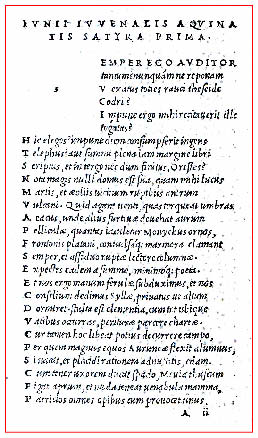 IVNII IVVENALIS AQVINA
TIS SATYRA PRIMA.
S
EMPER EGO AVDITOR
tantum? nunquám ne reponam
V exatus toties rauci theseide
Codri?
I mpune ergo mihi recitauerit ille
togatas?
H ic elegos? impune diem consumpserit ingens
T elephus? aut summi plena iam margine libri
S criptus, et in tergo nec dum finitus, Orestes?
N ota magis nulli domus est sua, quam mihi lucus
M artis, et æoliis uicinum rupibus antrum
V ulcani. Quid agant uenti, quas torqueat umbras
A eacus, unde alius furtiuæ deuehat aurum
P elliculæ, quantas iaculetur Monychus ornos,
F rontonis platani, conuulsáq; marmora clamant
S emper, et assiduo ruptæ lectore columnæ.
E xpectes eadem a summo, minimóq; poeta.
E t nos ergo manum ferulæ subduximus, et nos
C onsilium dedimus Syllæ, priuatus ut altum
D ormiret. stulta est clementia, cum tot ubique
V atibus occurras, perituræ parcere chartæ.
C ur tamen hoc libeat potius decurrere campo,
P er quem magnus equos Auruncæ flexit alumnus,
S i uacat, et placidi rationem admittitis, edam.
C um tener uxorem ducat spado, Meuia thuscum
F igat aprum, et nuda teneat uenabula mamma,
P atritios omnes opibus cum prouocet unus,
A ii